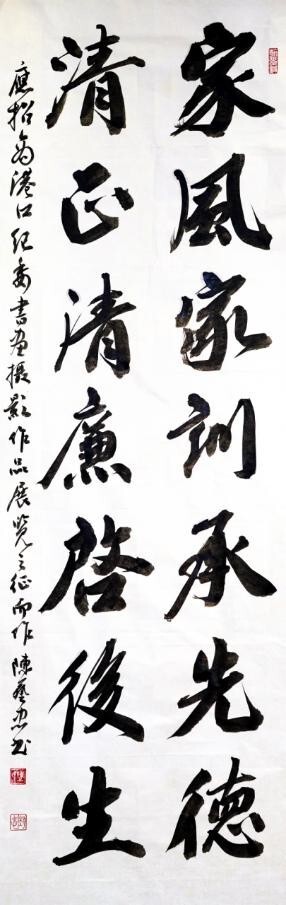 家風家訓承先德
清正清廉啓後生
應招商港口紀委書畫摄影作品展覽之征而作 陳藝忠书